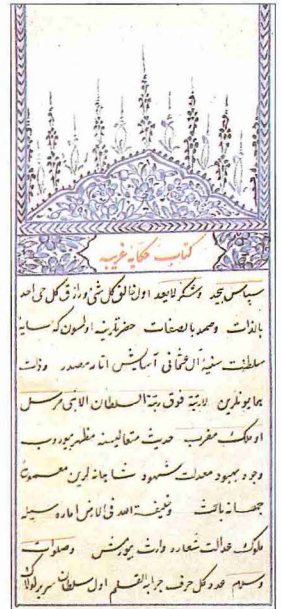 كتاب حكايه غريبه
سپاس بيحد و شكر لا يعد اول خالق كل شئ و رازق كل حى احد
بالذات و صمد بالصفات حضرتلرينه اولسون كه سايه
سلطنت سنيه آل عثمانى آسايش انامه مصدر و ذات
همايونلرين لا رتبة فوق رتبة السلطان الا نبى مرسل
او ملك مقرب حديث متعاليسنه مظهر بيوروب
وجود بهبود معدلت شهود شاهانه لرين معمورئ
جهانه باعث و خليفة الله فى الارض
ملوك عدالت شعاره وارث بيورمش و صلوات
و سلام عدد كل حرف جرى به القلم اول سلطان سرير لولاك